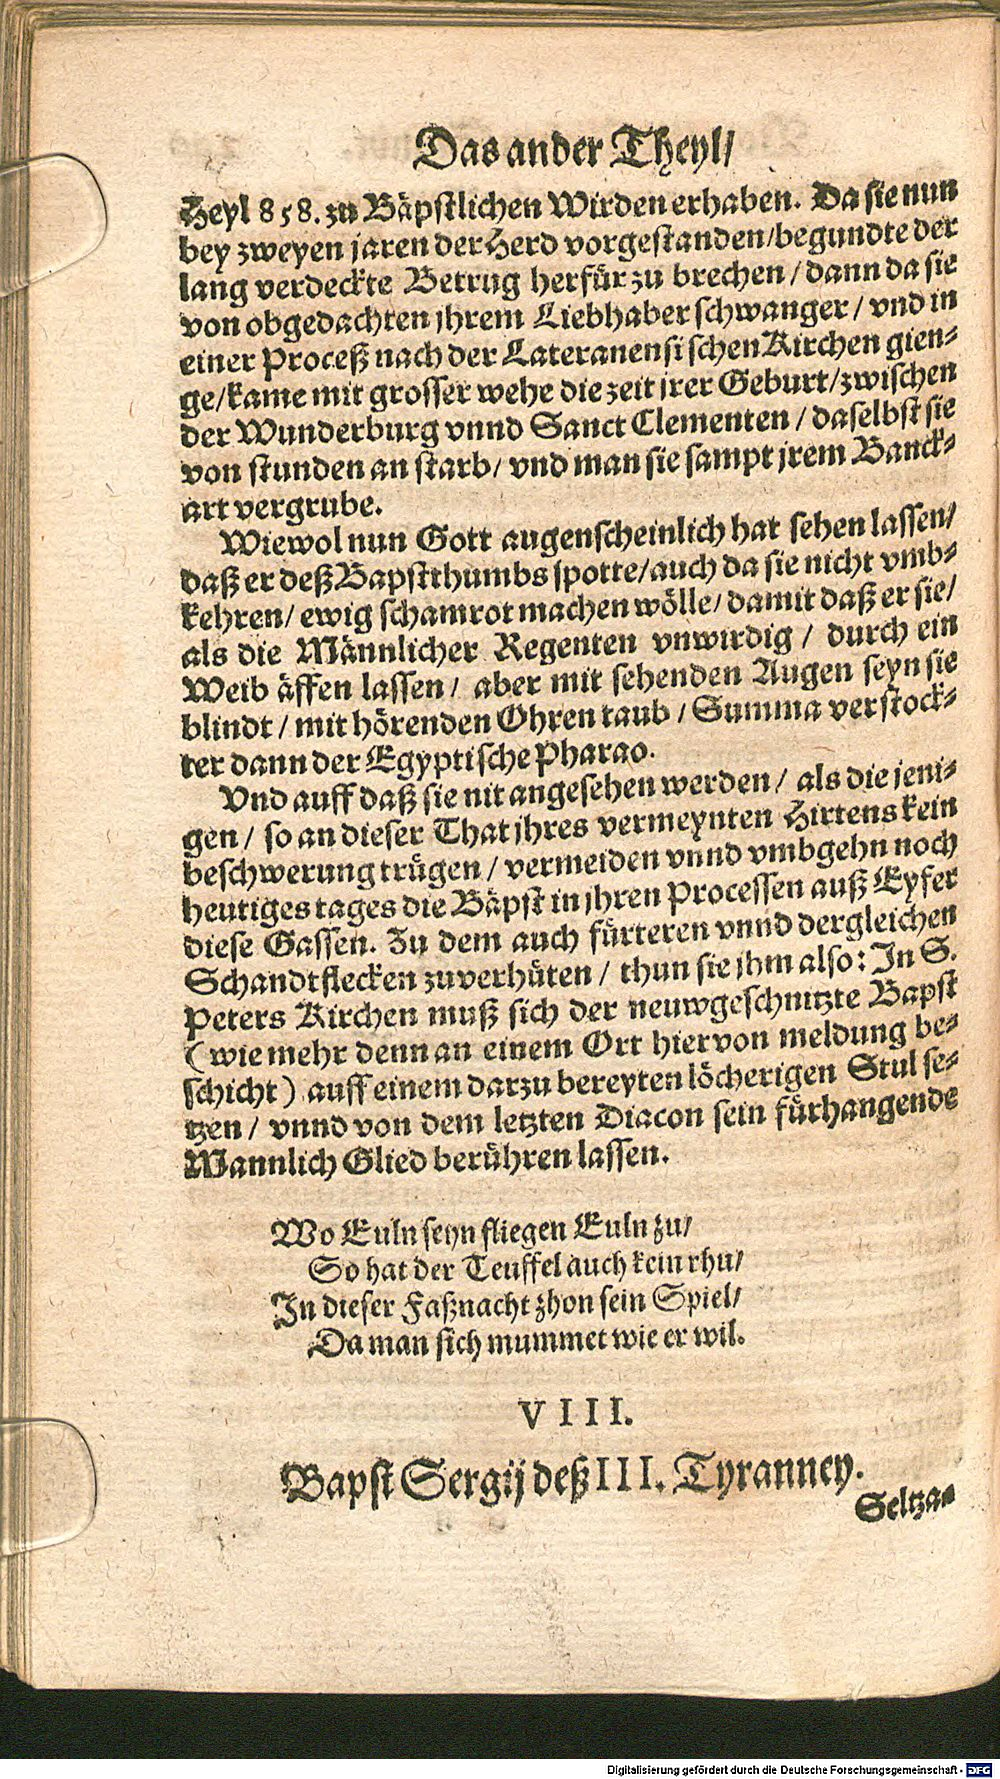 Das ander Theyl/
Heyl 858. zu Bäpstlichen Wirden erhaben. Da sie nun
bey zweyen jaren der Herd vorgestanden/begundte der
lang verdeckte Betrug herfür zu brechen/dann da sie
von obgedachten jhrem Liebhaber schwanger/vnd in
einer Proceß nach der Lateranensischen Kirchen gien-
ge/kame mit grosser wehe die zeit jrer Geburt/zwischen
der Wunderburg vnnd Sanct Clementen/daselbst sie
von stunden an starb/vnd man sie sampt jrem Banck-
art vergrube.
Wiewol nun Gott augenscheinlich hat sehen lassen/
daß er deß Bapstthumbs spotte/auch da sie nicht vmb-
kehren/ewig schamrot machen wölle/damit daß er sie/
als die Männlicher Regenten vnwirdig/durch ein
Weib äffen lassen/aber mit sehenden Augen seyn sie
blindt/mit hörenden Ohren taub/Summa verstock-
ter dann der Egyptische Pharao.
Vnd auff daß sie nit angesehen werden/als die jeni-
gen/so an dieser That jhres vermeynten Hirtens kein
beschwerung trügen/vermeiden vnnd vmbgehn noch
heutiges tages die Bäpst in jhren Processen auß Eyfer
diese Gassen. Zu dem auch fürteren vnnd dergleichen
Schandtflecken zuverhüten/thun sie jhm also: In S.
Peters Kirchen muß sich der neuwgeschnitzte Bapst
(wie mehr denn an einem Ort hiervon meldung be-
schicht) auff einem darzu bereyten löcherigen Stul se-
tzen/vnnd von dem letzten Diacon sein fürhangende
Mannlich Glied berühren lassen.
Wo Euln seyn fliegen Euln zu/
So hat der Teuffel auch kein rhu/
In dieser Faßnacht zhon sein Spiel/
Da man sich mummet wie er wil.
VIII.
Bapst Sergij deß III. Tyranney.
Seltza-
Digitalisierung gefördert durch die Deutsche Forschungsgemeinschaft - DFG